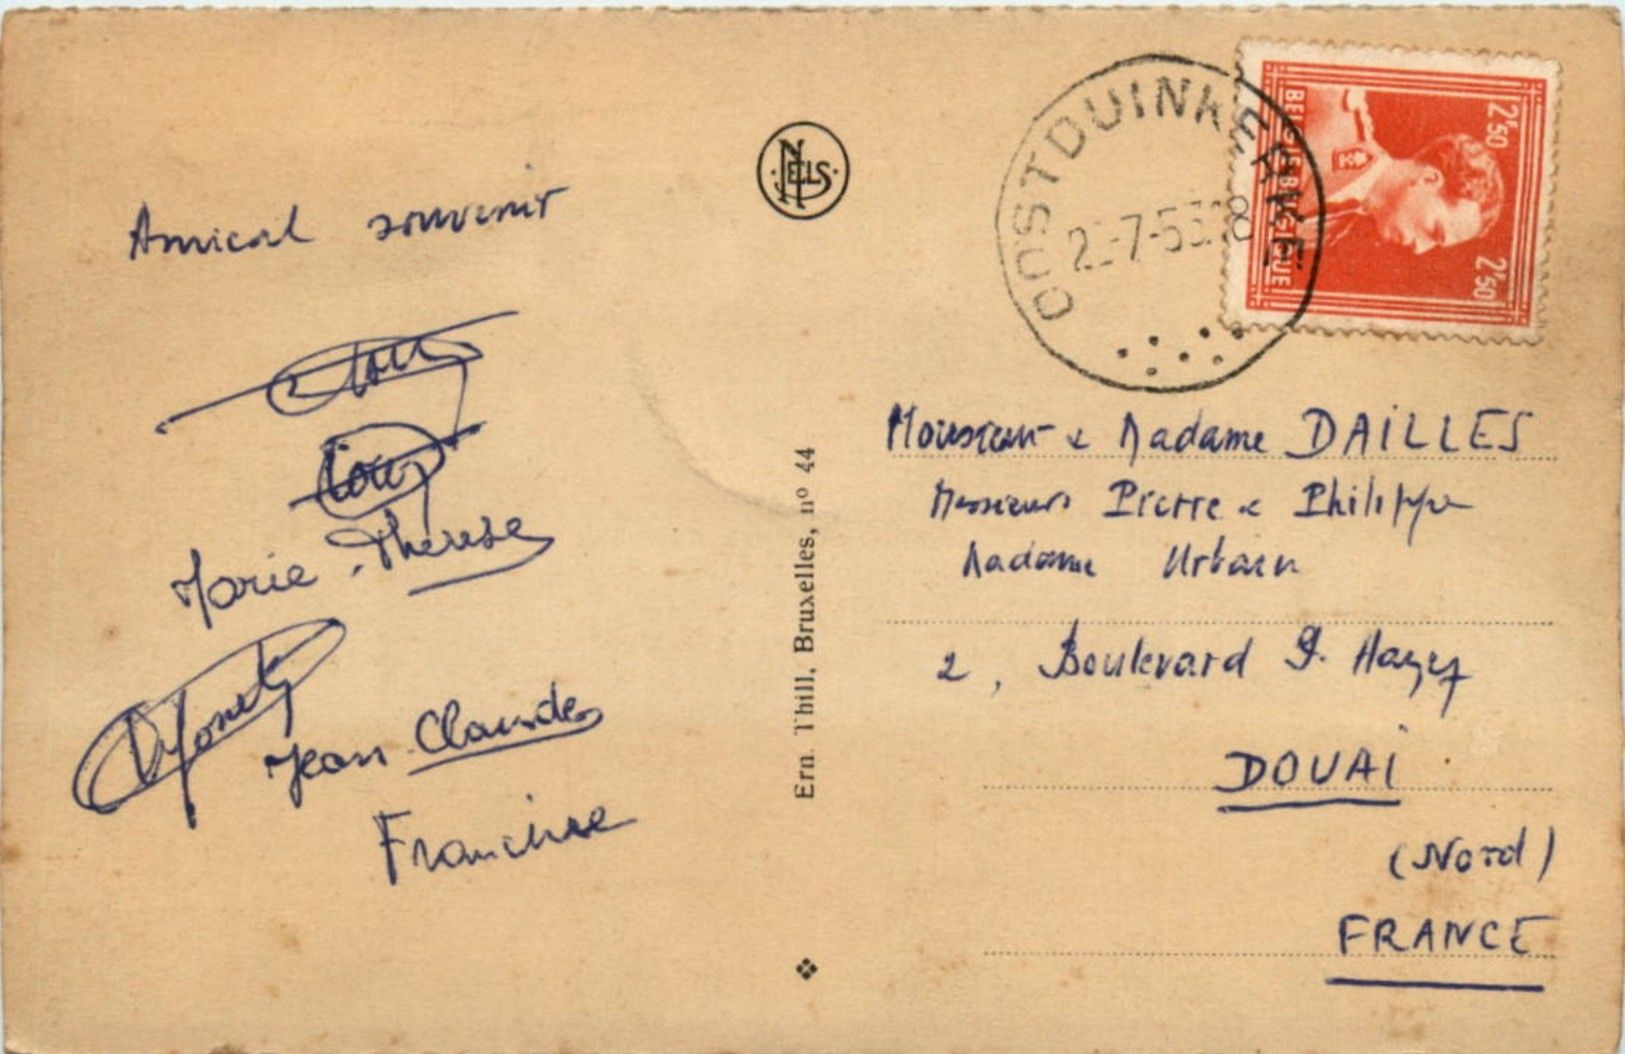 Amical souvenir
Marie-Thérèse
Jean Claude
Francine
NELS
Ern. Thill, Bruxelles, nº 44
OOSTDUINKERKE
-7-53 18
BELGIE-BELGIQUE
2F50
2F50
Monsieur & Madame DAILLES
Messieurs Pierre & Philippe
Madame Urbain
2, Boulevard
DOUAI
(Nord)
FRANCE